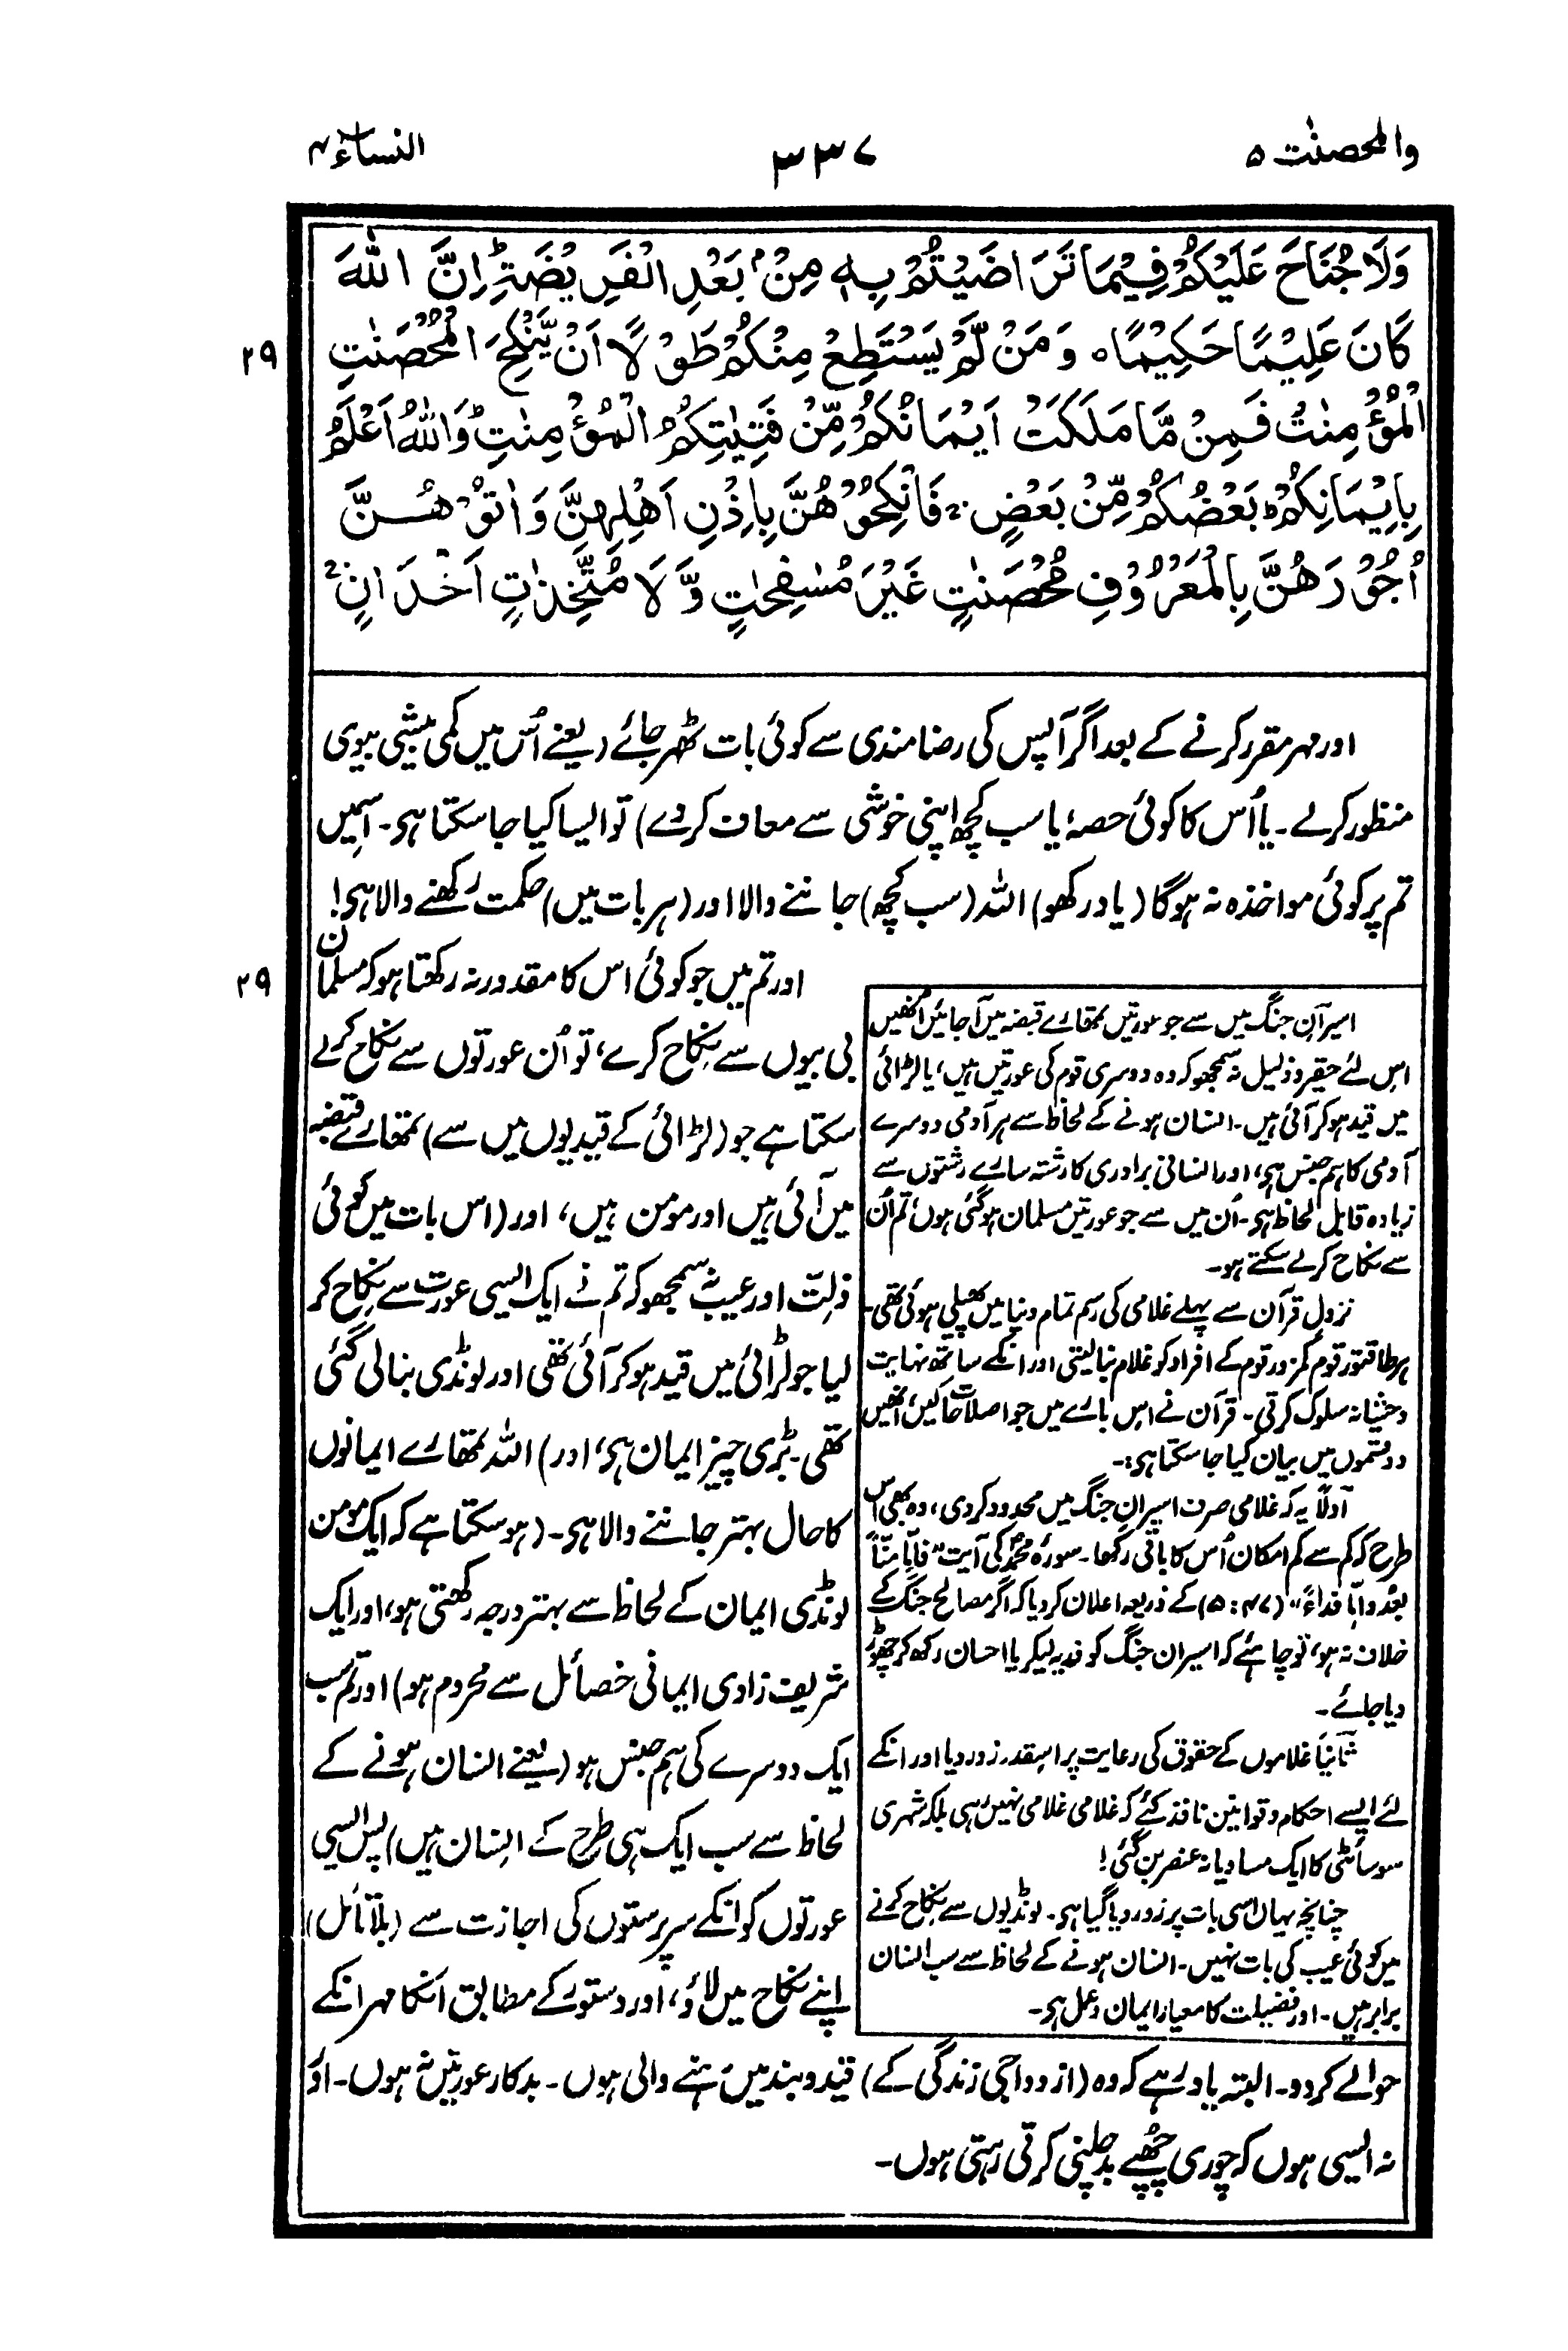 والمحصنٰت ۵
۳۳۷
النساء ۴
وَلَا جُنَاحَ عَلَيْكُمْ فِيْمَا تَرَاضَيْتُمْ بِهٖ مِنْۢ بَعْدِ الْفَرِيْضَةِ ؕ اِنَّ اللّٰهَ
كَانَ عَلِيْمًا حَكِيْمًا ۝ وَمَنْ لَّمْ يَسْتَطِعْ مِنْكُمْ طَوْلًا اَنْ يَّنْكِحَ الْمُحْصَنٰتِ
۲۹
الْمُؤْمِنٰتِ فَمِنْ مَّا مَلَكَتْ اَيْمَانُكُمْ مِّنْ فَتَيٰتِكُمُ الْمُؤْمِنٰتِ ؕ وَاللّٰهُ اَعْلَمُ
بِاِيْمَانِكُمْ ؕ بَعْضُكُمْ مِّنْ بَعْضٍ ۚ فَانْكِحُوْهُنَّ بِاِذْنِ اَهْلِهِنَّ وَاٰتُوْهُنَّ
اُجُوْرَهُنَّ بِالْمَعْرُوْفِ مُحْصَنٰتٍ غَيْرَ مُسٰفِحٰتٍ وَّلَا مُتَّخِذٰتِ اَخْدَانٍ ۚ
اور مہر مقرر کرنے کے بعد اگر آپس کی رضامندی سے کوئی بات ٹھہر جائے (یعنے اُس میں کمی بیشی بیوی
منظور کرلے۔ یا اُس کا کوئی حصہ یا سب کچھ اپنی خوشی سے معاف کر دے) تو ایسا کیا جا سکتا ہی۔ اسمیں
تم پر کوئی مواخذہ نہ ہوگا (یاد رکھو) اللہ (سب کچھ) جاننے والا اور (ہر بات میں) حکمت رکھنے والا ہی!
اور تم میں جو کوئی اس کا مقدور نہ رکھتا ہو کہ مسلمان
۲۹
بی بیوں سے نکاح کرے، تو اُن عورتوں سے نکاح کرلے
سکتا ہے جو (لڑائی کے قیدیوں میں سے) تمھارے قبضہ
میں آئی ہیں اور مومن ہیں، اور (اس بات میں کوئی
ذلت اور عیب نہ سمجھو کہ تم نے ایک ایسی عورت سے نکاح کر
لیا جو لڑائی میں قید ہو کر آئی تھی اور لونڈی بنالی گئی
تھی۔ بڑی چیز ایمان ہی، اور) اللہ تمھارے ایمانوں
کا حال بہتر جاننے والا ہی۔ (ہو سکتا ہے کہ ایک مومن
لونڈی ایمان کے لحاظ سے بہتر درجہ رکھتی ہو، اور ایک
شریف زادی ایمانی خصائل سے محروم ہو) اور تم سب
ایک دوسرے کی ہم جنس ہو (یعنے انسان ہونے کے
لحاظ سے سب ایک ہی طرح کے انسان ہیں) پس ایسی
عورتوں کو انکے سرپرستوں کی اجازت سے (بلا تأمل)
اپنے نکاح میں لاؤ، اور دستور کے مطابق انکا مہر انکے
اسیرانِ جنگ میں سے جو عورتیں تمھارے قبضہ میں آجائیں اُنھیں
اس لئے حقیر و ذلیل نہ سمجھو کہ وہ دوسری قوم کی عورتیں ہیں، یا لڑائی
میں قید ہو کر آئی ہیں۔ انسان ہونے کے لحاظ سے ہر آدمی دوسرے
آدمی کا ہم جنس ہی، اور انسانی برادری کا رشتہ سارے رشتوں سے
زیادہ قابلِ لحاظ ہی۔ اُن میں سے جو عورتیں مسلمان ہو گئی ہوں، تم اُن
سے نکاح کرلے سکتے ہو۔
نزولِ قرآن سے پہلے غلامی کی رسم تمام دنیا میں پھیلی ہوئی تھی۔
ہر طاقتور قوم کمزور قوم کے افراد کو غلام بنا لیتی اور انکے ساتھ نہایت
وحشیانہ سلوک کرتی۔ قرآن نے اس بارے میں جو اصلاحات کیں، اُنھیں
دو قسموں میں بیان کیا جا سکتا ہی:۔
اولاً یہ کہ غلامی صرف اسیرانِ جنگ میں محدود کر دی، وہ بھی اس
طرح کہ کم سے کم امکان اُس کا باقی رکھا۔ سورۂ محمدؐ کی آیت "فاِمّا منّاً
بعد واِمّا فداءً" (۴۷:۵) کے ذریعہ اعلان کر دیا کہ اگر مصالح جنگ کے
خلاف نہ ہو، تو چاہئے کہ اسیران جنگ کو فدیہ لیکر یا احسان رکھ کر چھوڑ
دیا جائے۔
ثانیاً غلاموں کے حقوق کی رعایت پر اسقدر زور دیا اور انکے
لئے ایسے احکام و قوانین نافذ کئے کہ غلامی غلامی نہیں رہی بلکہ شہری
سوسائٹی کا ایک مساویانہ عنصر بن گئی!
چنانچہ یہاں اسی بات پر زور دیا گیا ہی۔ لونڈیوں سے نکاح کرنے
میں کوئی عیب کی بات نہیں۔ انسان ہونے کے لحاظ سے سب انسان
برابر ہیں۔ اور فضیلت کا معیار ایمان و عمل ہی۔
حوالے کردو۔ البتہ یاد رہے کہ وہ (ازدواجی زندگی کے) قید و بند میں رہنے والی ہوں۔ بدکار عورتیں نہ ہوں۔ اور
نہ ایسی ہوں کہ چوری چھپے بدچلنی کرتی رہتی ہوں۔